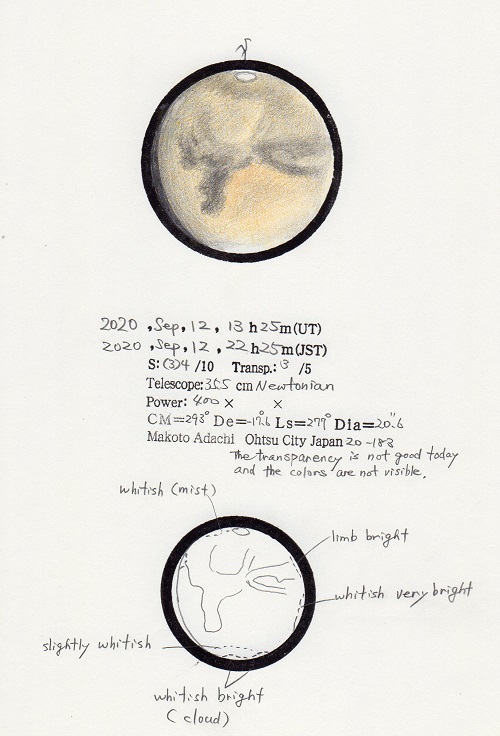 2020 , Sep, 12 , 13 h 25m (UT)
2020 , Sep, 12 , 22 h 25m (JST)
S: (3)4 /10 Transp.: 3 /5
Telescope: 355 cm Newtonian
Power: 400 × ×
CM=293° De=-17.6° Ls=277° Dia=20.6"
Makoto Adachi Ohtsu City Japan 20-183
The transparency is not good today
and the colors are not visible.
whitish (mist)
limb bright
whitish very bright
slightly whitish
whitish bright
(cloud)